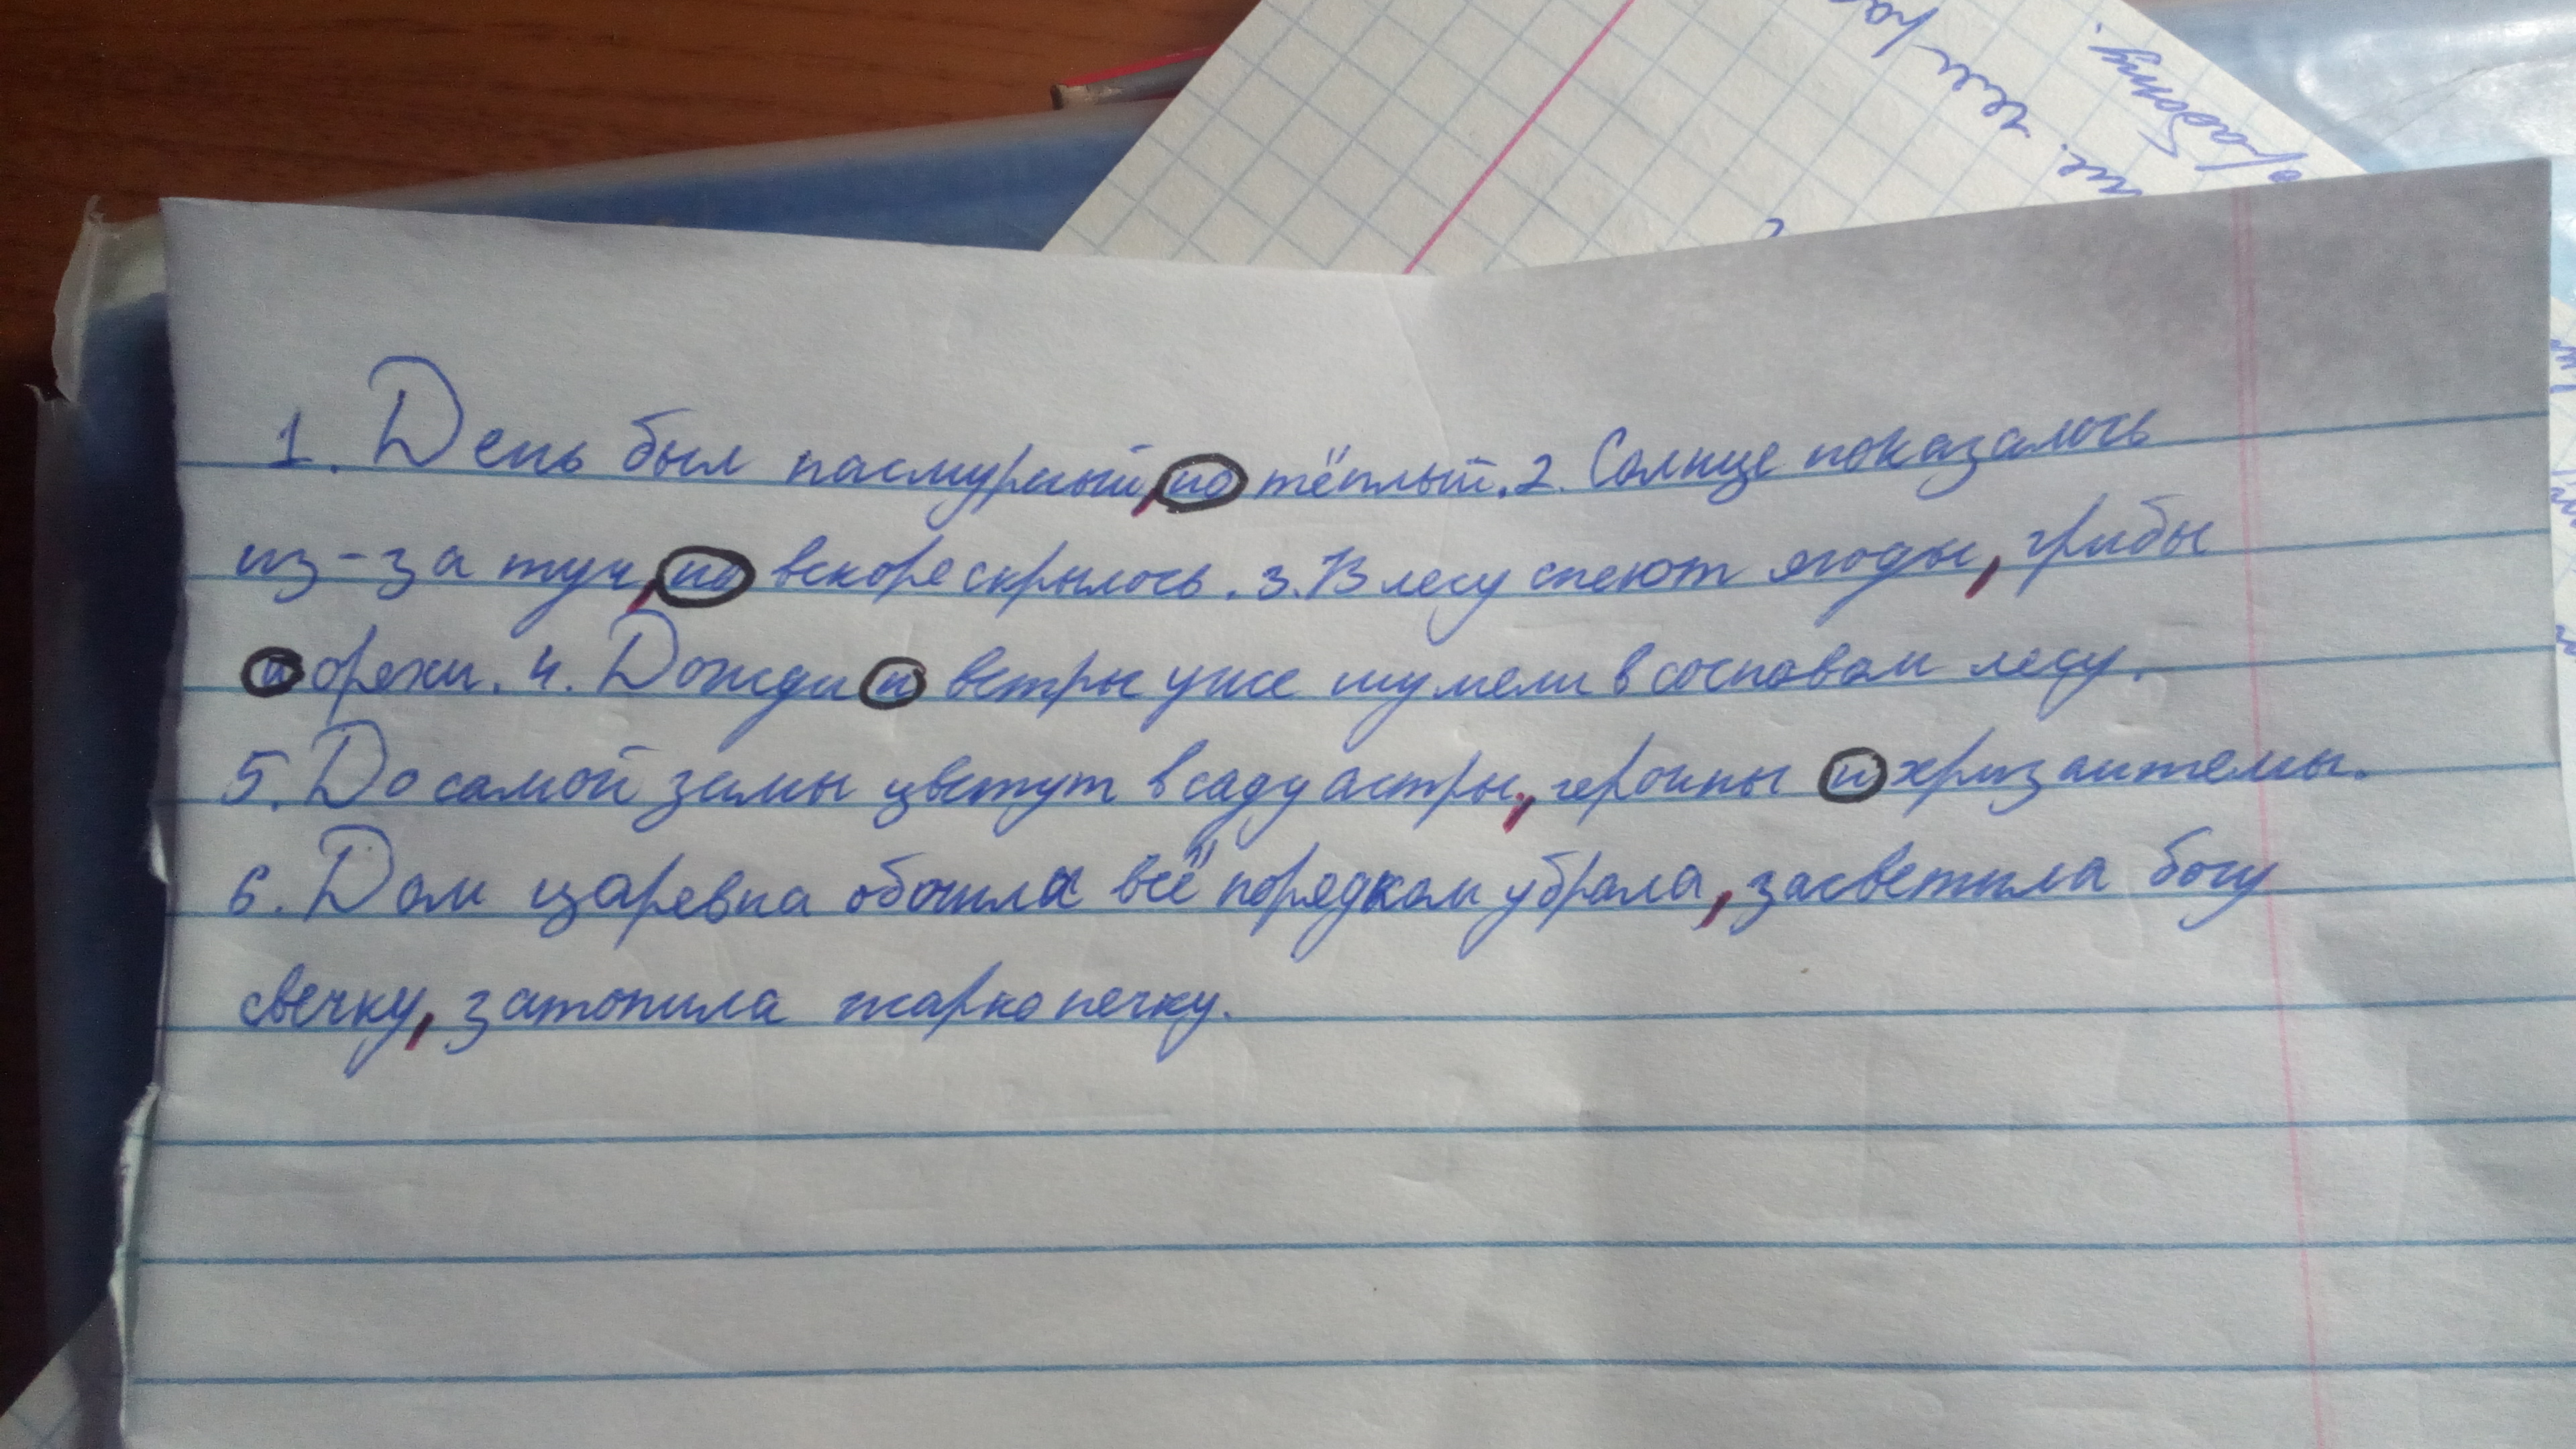 чем ра
ше.
работу.
1. День был пасмурный, но тёплый. 2. Солнце показалось
из-за туч, но вскоре скрылось. 3. В лесу спеют ягоды, грибы
и орехи. 4. Дожди и ветры уже шумели в сосновом лесу.
5. До самой зимы цветут в саду астры, героины и хризантемы.
6. Дом царевна обошла всё порядком убрала, засветила богу
свечку, затопила жарко печку.